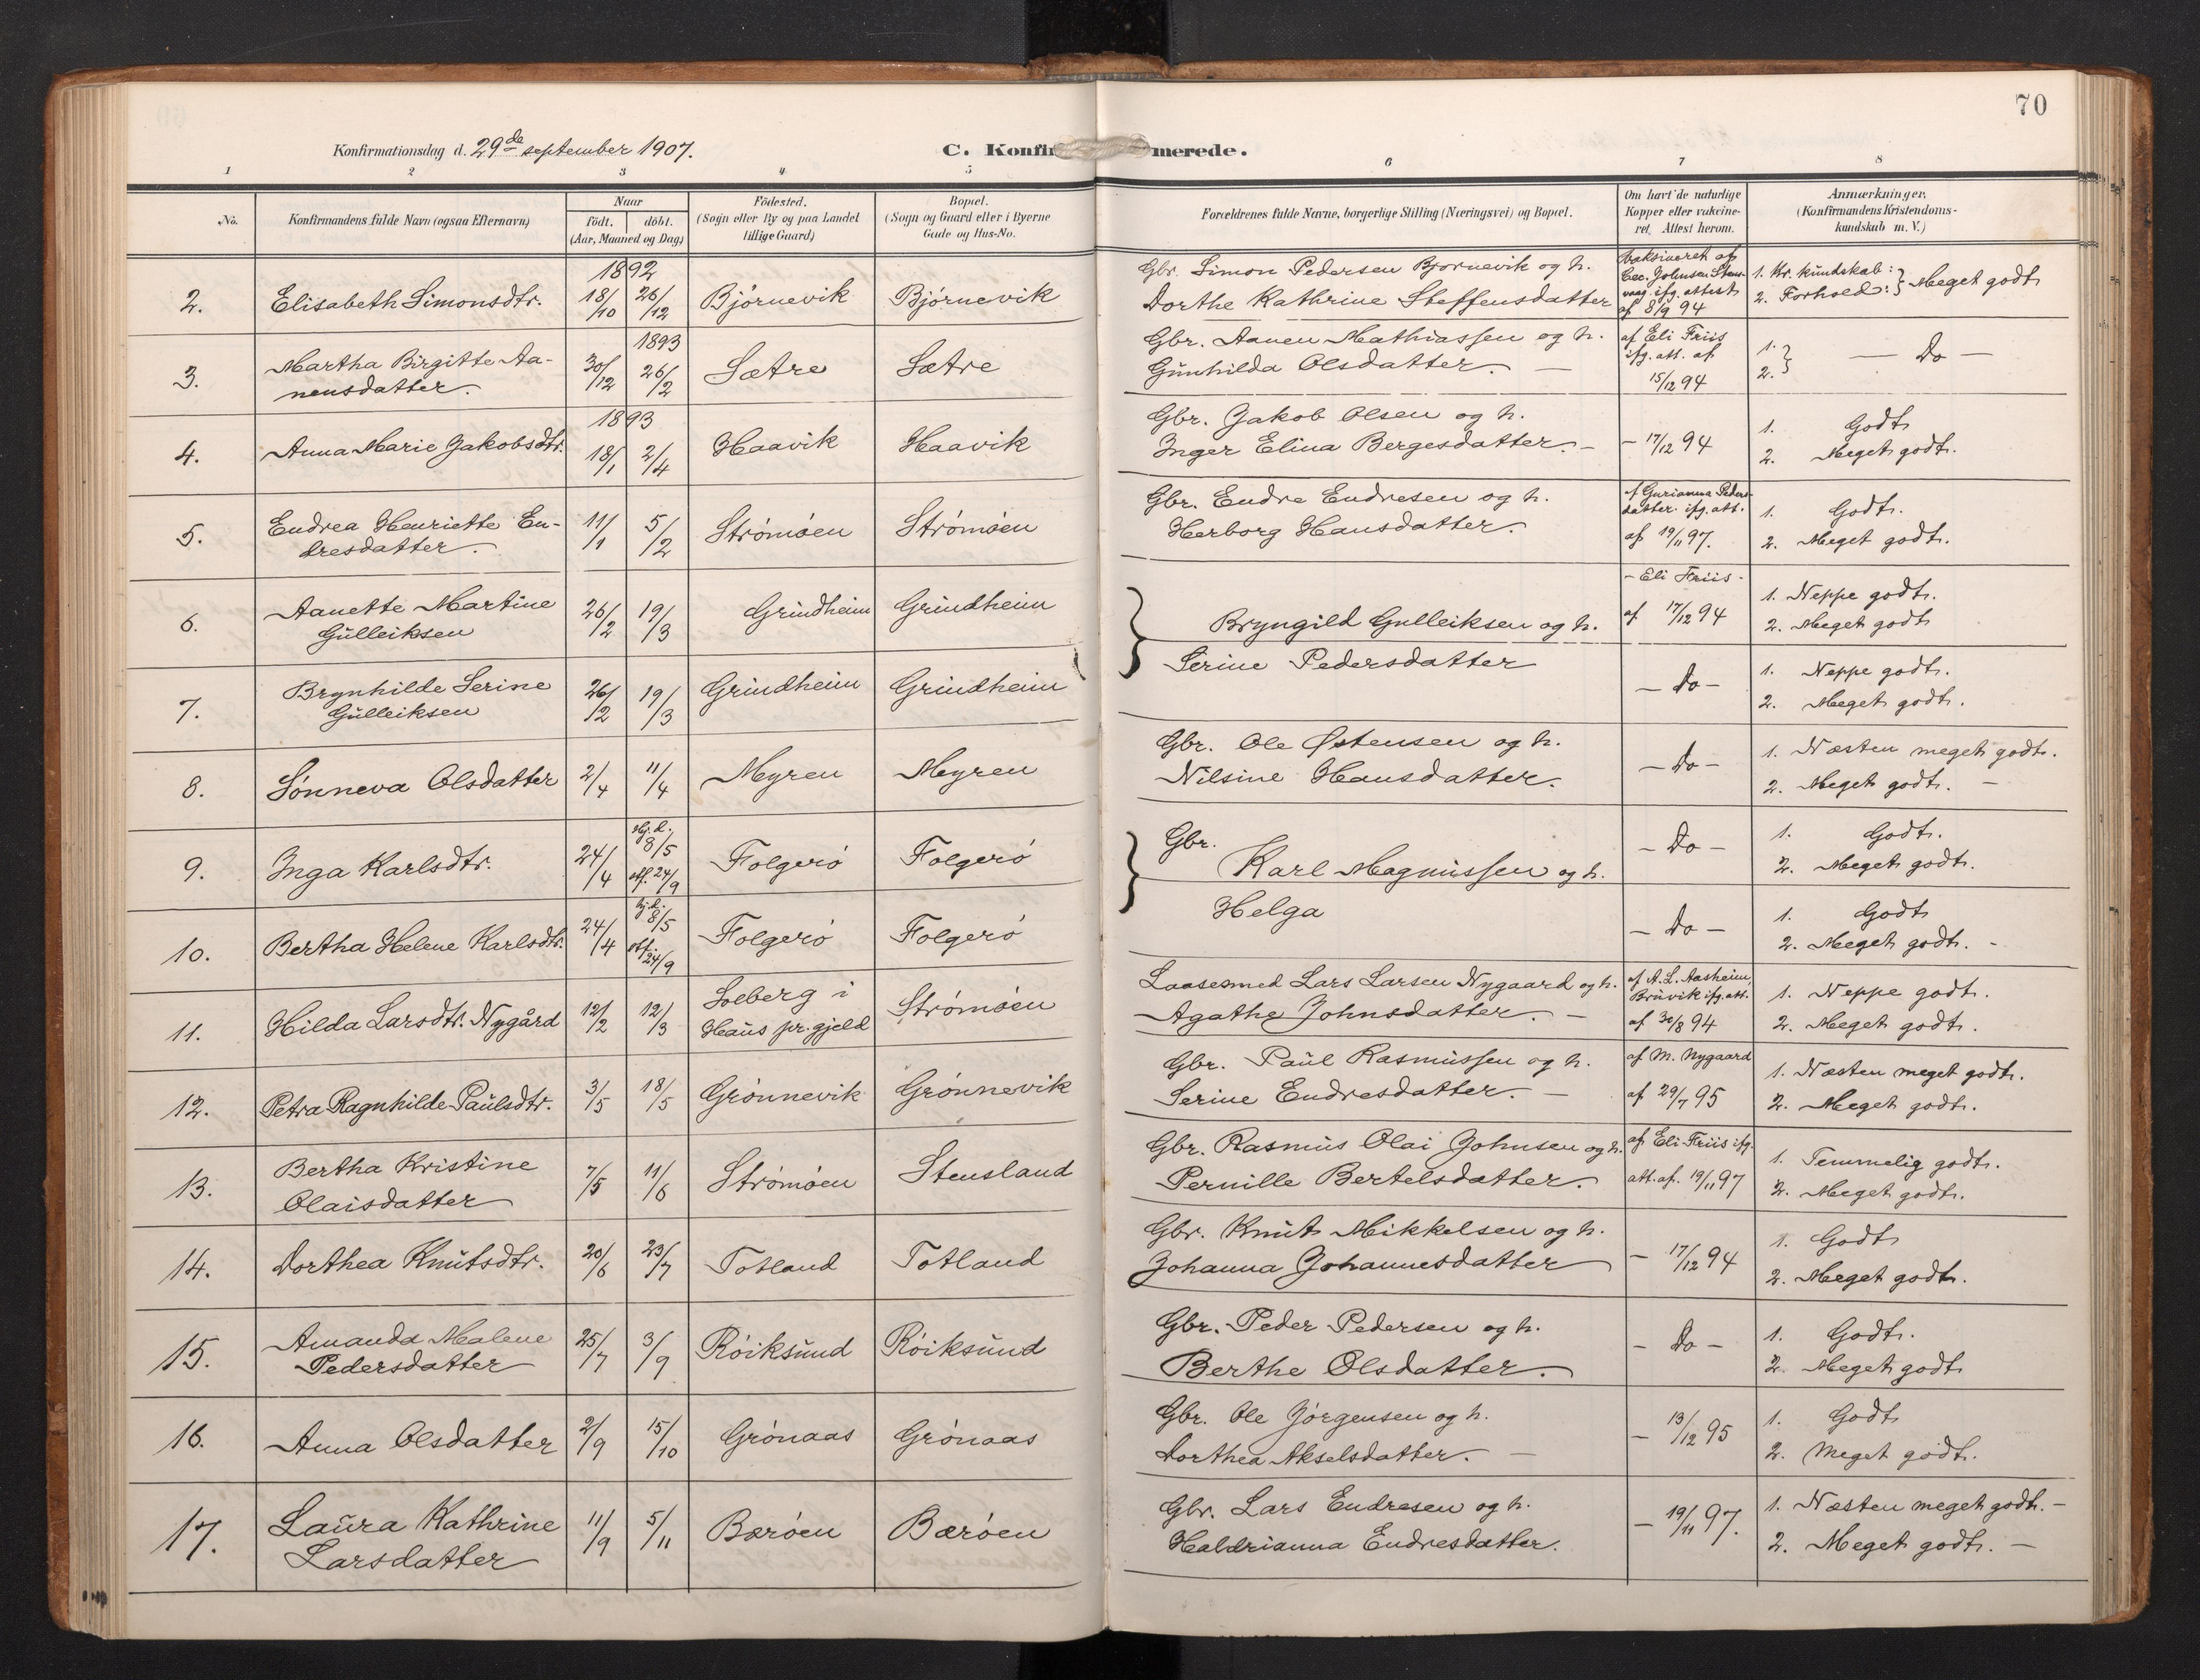 70
Konfirmationsdag d. 29de september 1907.
C. Konfirmerede.
1 2 3 4 5 6 7 8
No.
Konfirmandens fulde Navn (ogsaa Efternavn)
Naar
födt. döbt.
(Aar, Maaned og Dag)
Födested.
(Sogn eller By og paa Landet
tillige Gaard)
Bopæl.
(Sogn og Gaard eller i Byerne
Gade og Hus-No.
Forældrenes fulde Navne, borgerlige Stilling (Næringsvei) og Bopæl.
Om havt de naturlige
Kopper eller vakcine-
ret. Attest herom.
Anmærkninger.
(Konfirmandens Kristendoms-
kundskab m. V.)
2. Elisabeth Simonsdtr. 1892 18/10 26/12 Bjørnevik Bjørnevik
Gbr. Simon Pedersen Bjørnevik og h.
Dorthe Kathrine Steffensdatter
Vaksineret af
Cec. Johnsen Stens-
vaag ifg. attest
af 8/9 94
1. Kr. kundskab:
2. Forhold: } Meget godt
3. Martha Birgitte Aa-
nensdatter. 30/12 1893 26/2 Sætre Sætre
Gbr. Aanen Mathiassen og h.
Gunhilda Olsdatter. —
af Eli Friis
ifg. att. af
15/12 94
1.
2. } — Do —
4. Anna Marie Jakobsdtr. 1893 18/1 2/4 Haavik Haavik
Gbr. Jakob Olsen og h.
Inger Elina Bergesdatter. —
— 17/12 94
1. Godt
2. Meget godt.
5. Endrea Henriette En-
dresdatter. 11/1 5/2 Strømøen Strømøen
Gbr. Endre Endresen og h.
Herborg Hansdatter.
af Gurianna Peders-
datter ifg. att.
af 19/11 97.
1. Godt.
2. Meget godt.
6. Aanette Martine
Gulleiksen 26/2 19/3 Grindheim Grindheim
} Bryngild Gulleiksen og h.
Serine Pedersdatter
— Eli Friis —
af 17/12 94
1. Neppe godt.
2. Meget godt
7. Brynhilde Serine
Gulleiksen 26/2 19/3 Grindheim Grindheim
— Do —
1. Neppe godt.
2. Meget godt.
8. Sønneva Olsdatter 2/4 11/4 Myren Myren
Gbr. Ole Østensen og h.
Nilsine Hansdatter.
— Do —
1. Næsten meget godt.
2. Meget godt. —
9. Inga Karlsdtr. 24/4 hj. d. 8/5 stf. 24/9 Folgerø Folgerø
} Gbr.
Karl Magnussen og h.
Helga
— Do —
1. Godt.
2. Meget godt.
10. Bertha Helene Karlsdtr. 24/4 hj. d. 8/5 stf. 24/9 Folgerø Folgerø
— Do —
1. Godt
2. Meget godt. —
11. Hilda Larsdtr. Nygård 12/2 12/3 Soeberg i
Haus pr.gjeld Strømøen
Laasesmed Lars Larsen Nygaard og h.
Agathe Johnsdatter. —
af A. L. Aasheim,
Bruvik ifg. att.
af 30/8 94
1. Neppe godt.
2. Meget godt.
12. Petra Ragnhilde Paulsdtr. 3/5 18/5 Grønnevik Grønnevik
Gbr. Paul Rasmussen og h.
Serine Endresdatter. —
af M. Nygaard
af 29/7 95
1. Næsten meget godt.
2. Meget godt.
13. Bertha Kristine
Olaisdatter 7/5 11/6 Strømøen Stensland
Gbr. Rasmus Olai Johnsen og h.
Pernille Bertelsdatter.
af Eli Friis ifg.
att. af. 19/11 97
1. Temmelig godt.
2. Meget godt.
14. Dorthea Knutsdtr. 20/6 23/7 Totland Totland
Gbr. Knut Mikkelsen og h.
Johanna Johannesdatter
— 17/12 94
1. Godt
2. Meget godt.
15. Amanda Malene
Pedersdatter 25/7 3/9 Røiksund Røiksund
Gbr. Peder Pedersen og h.
Berthe Olsdatter.
— Do —
1. Godt.
2. Meget godt
16. Anna Olsdatter 2/9 15/10 Grønaas Grønaas
Gbr. Ole Jørgensen og h.
Dorthea Akselsdatter. —
— 13/12 95
1. Godt
2. Meget godt.
17. Laura Kathrine
Larsdatter 11/9 5/11 Bærøen Bærøen
Gbr. Lars Endresen og h.
Haldrianna Endresdatter.
— 19/11 97.
1. Næsten meget godt. —
2. Meget godt. —